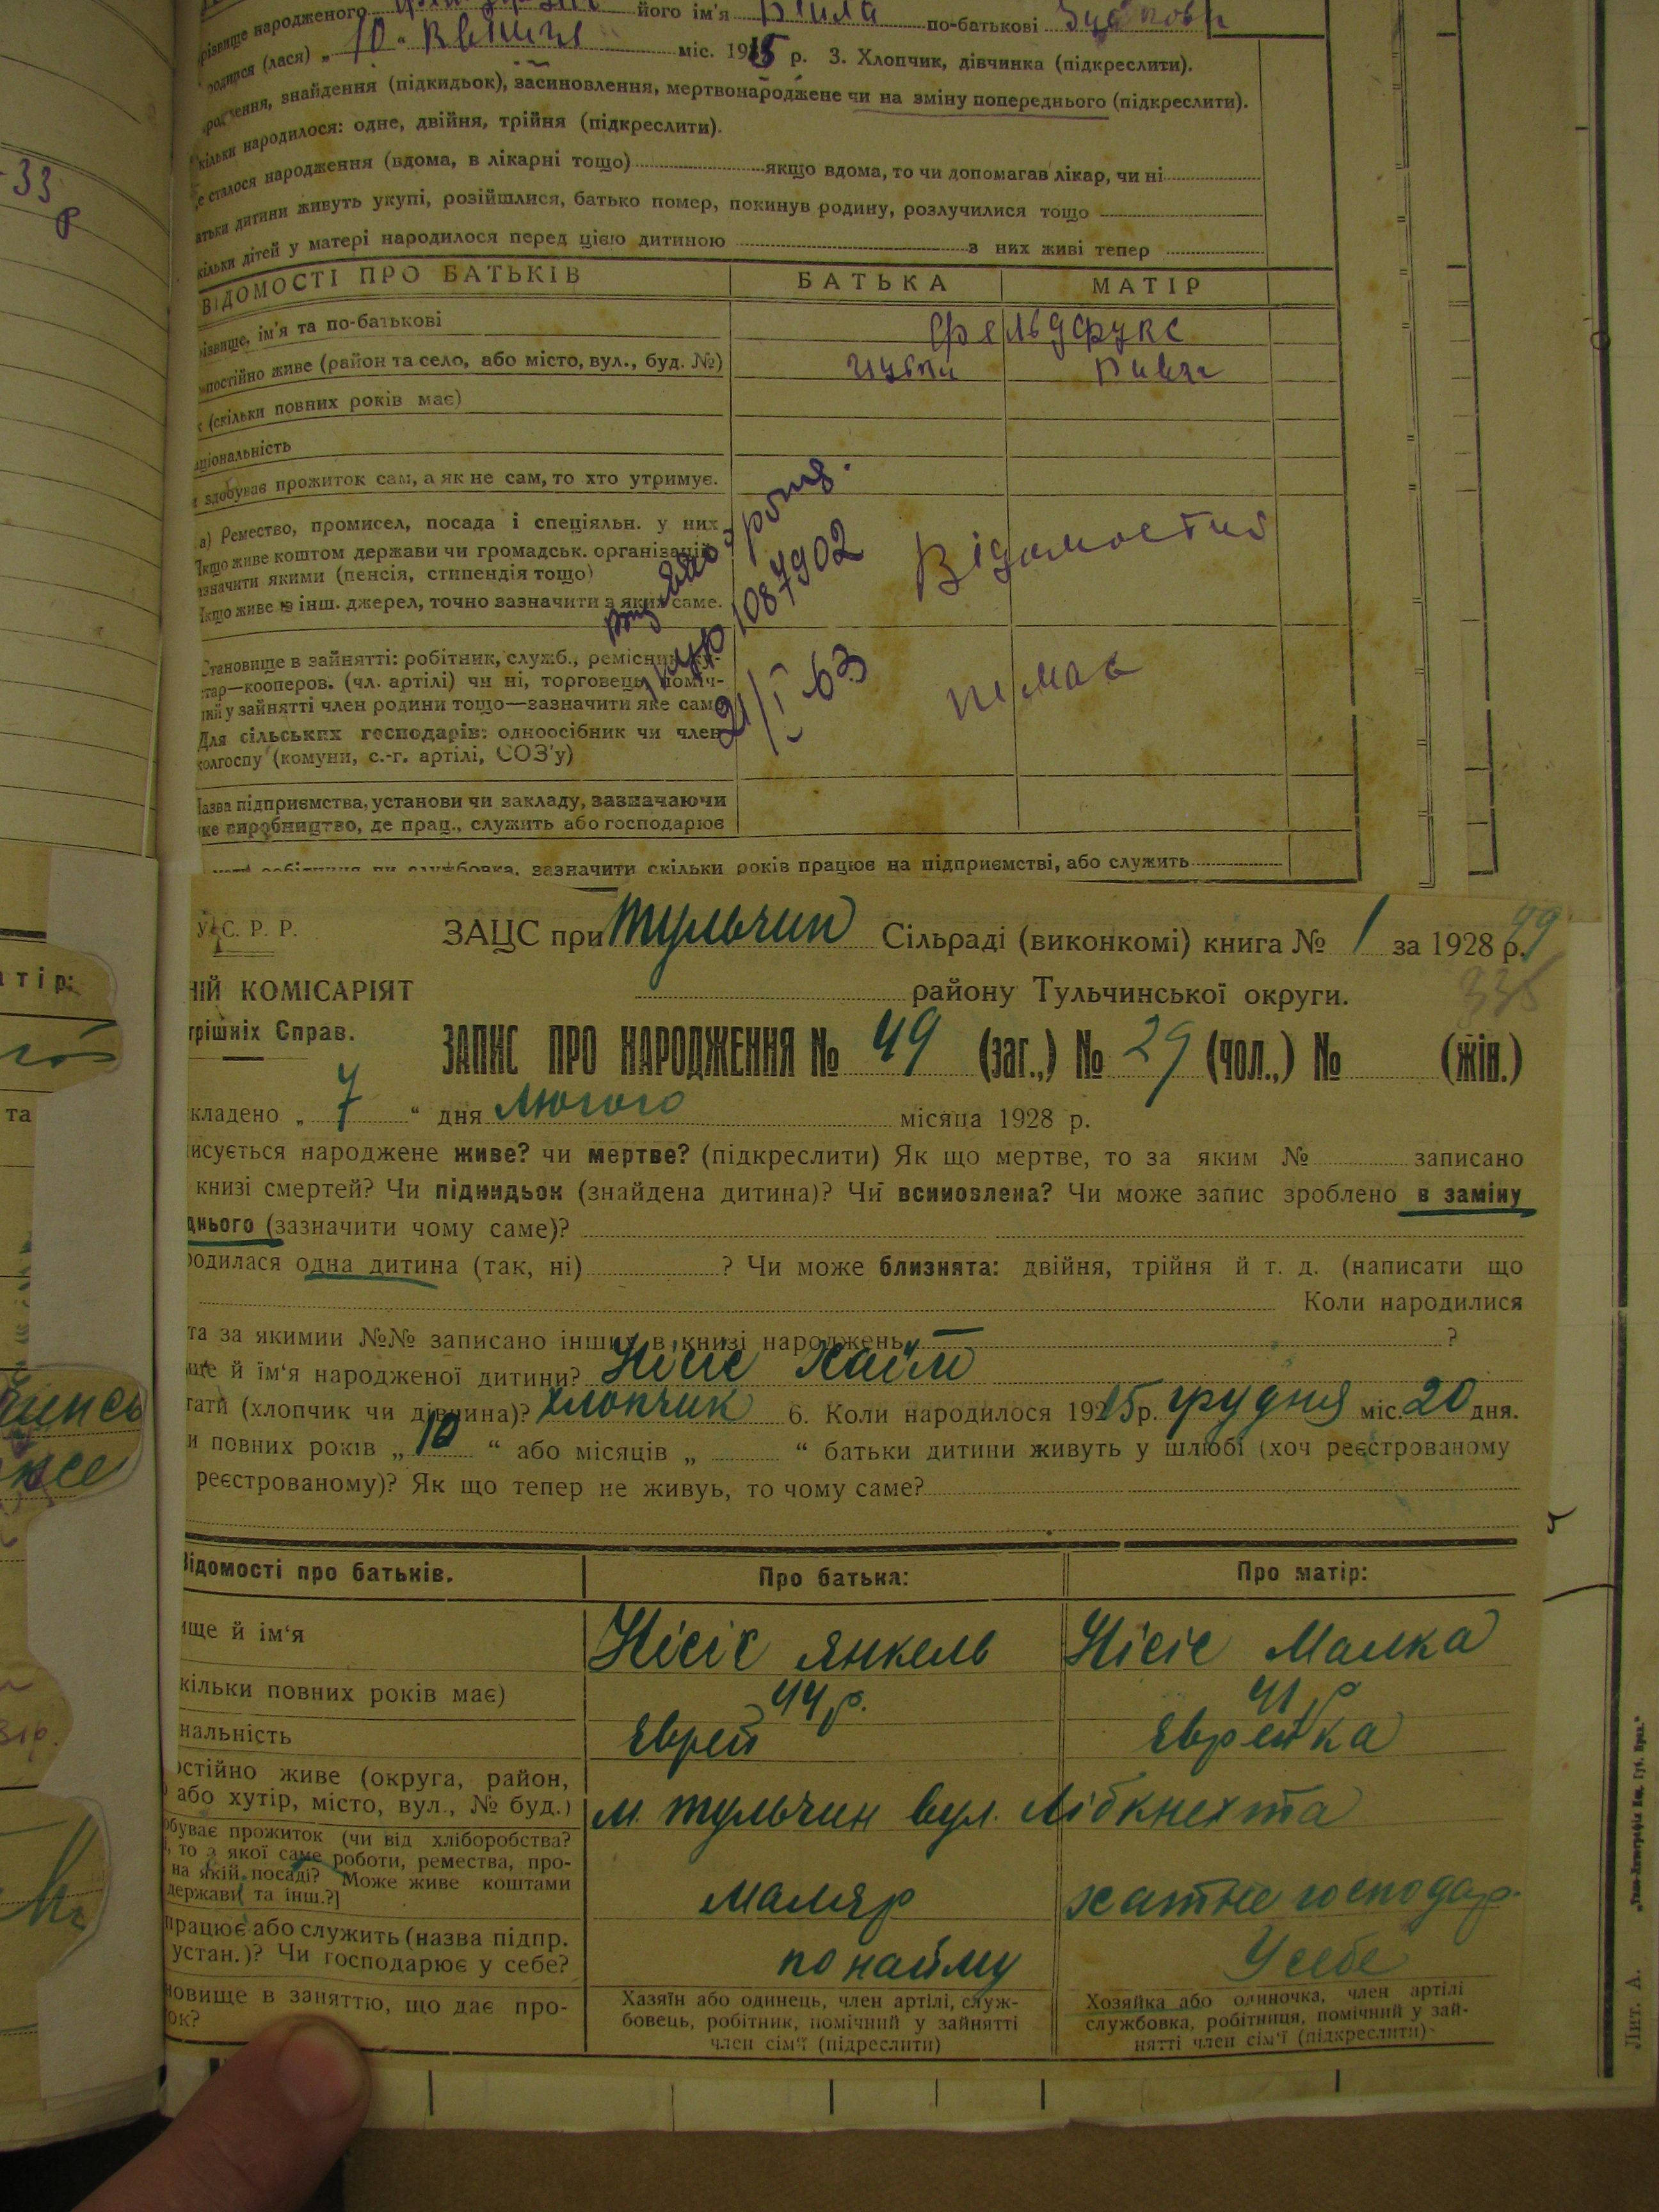 різвище народженого його ім'я по-батькові
родився (лася) „ 10 “ міс. 1915 р. 3. Хлопчик, дівчинка (підкреслити).
знайдення (підкидьок), засиновлення, мертвонароджене чи на зміну попереднього (підкреслити).
кільки народилося: одне, двійня, трійня (підкреслити).
е сталося народження (вдома, в лікарні тощо) якщо вдома, то чи допомагав лікар, чи ні
атьки дитини живуть укупі, розійшлися, батько помер, покинув родину, розлучилися тощо
кільки дітей у матері народилося перед цією дитиною з них живі тепер
ВІДОМОСТІ ПРО БАТЬКІВ БАТЬКА МАТІР
ізвище, ім'я та по-батькові Фельдфукс
постійно живе (район та село, або місто, вул., буд. №)
к (скільки повних років має)
аціональність
здобуває прожиток сам, а як не сам, то хто утримує.
а) Ремество, промисел, посада і спеціяльн. у них
Якщо живе коштом держави чи громадськ. організацій
азначити якими (пенсія, стипендія тощо)
Якщо живе із інш. джерел, точно зазначити з яких саме.
1087902
21/I 63
Відомостей
немає
Становище в зайнятті: робітник, служб., ремісник, ку-
тар—кооперов. (чл. артілі) чи ні, торговець, поміч-
ний у зайнятті член родини тощо—зазначити яке саме
Для сільських господарів: одноосібник чи член
колгоспу (комуни, с.-г. артілі, СОЗ'у)
Назва підприємства, установи чи закладу, зазначаючи
яке виробництво, де прац., служить або господарює
зазначити скільки років працює на підприємстві, або служить
У.С.Р.Р. ЗАЦС при Тульчин Сільраді (виконкомі) книга № 1 за 1928 р.
49
335
НІЙ КОМІСАРІЯТ району Тульчинської округи.
трішніх Справ.
ЗАПИС ПРО НАРОДЖЕННЯ № 49 (заг.,) № 29 (чол.,) № (жін.)
кладено „ 7 “ дня Лютого місяца 1928 р.
исується народжене живе? чи мертве? (підкреслити) Як що мертве, то за яким № записано
книзі смертей? Чи підкидьок (знайдена дитина)? Чи всиновлена? Чи може запис зроблено в заміну
днього (зазначити чому саме)?
родилася одна дитина (так, ні) ? Чи може близнята: двійня, трійня й т. д. (написати що
Коли народилися
та за якимии №№ записано інших в книзі народжень ?
ще й їм'я народженої дитини? Нісіс Хаїм
тати (хлопчик чи дівчина)? хлопчик 6. Коли народилося 1915 р. грудня міс. 20 дня.
и повних років „ 10 “ або місяців „ “ батьки дитини живуть у шлюбі (хоч реєстрованому
реєстрованому)? Як що тепер не живуь, то чому саме?
Відомості про батьків. Про батька: Про матір:
ище й ім'я Нісіс Янкель Нісіс Малка
кільки повних років має) 44 р. 41 р
нальність Єврей Єврейка
остійно живе (округа, район,
або хутір, місто, вул., № буд.) м. Тульчин вул. Лібкнехта
обуває прожиток (чи від хліборобства?
то з якої саме роботи, ремества, про-
на якій посаді? Може живе коштами
держави та інш.?] Маляр хатнє господар.
працює або служить (назва підпр.
устан.)? Чи господарює у себе? по найму У себе
новище в заняттю, що дає про-
ок?
Хазяїн або одинець, член артілі, служ-
бовець, робітник, помічний у зайнятті
член сім'ї (підреслити)
Хозяйка або одиночка, член артілі
службовка, робітниця, помічний у зай-
нятті член сім'ї (підкреслити)
Лит. А.